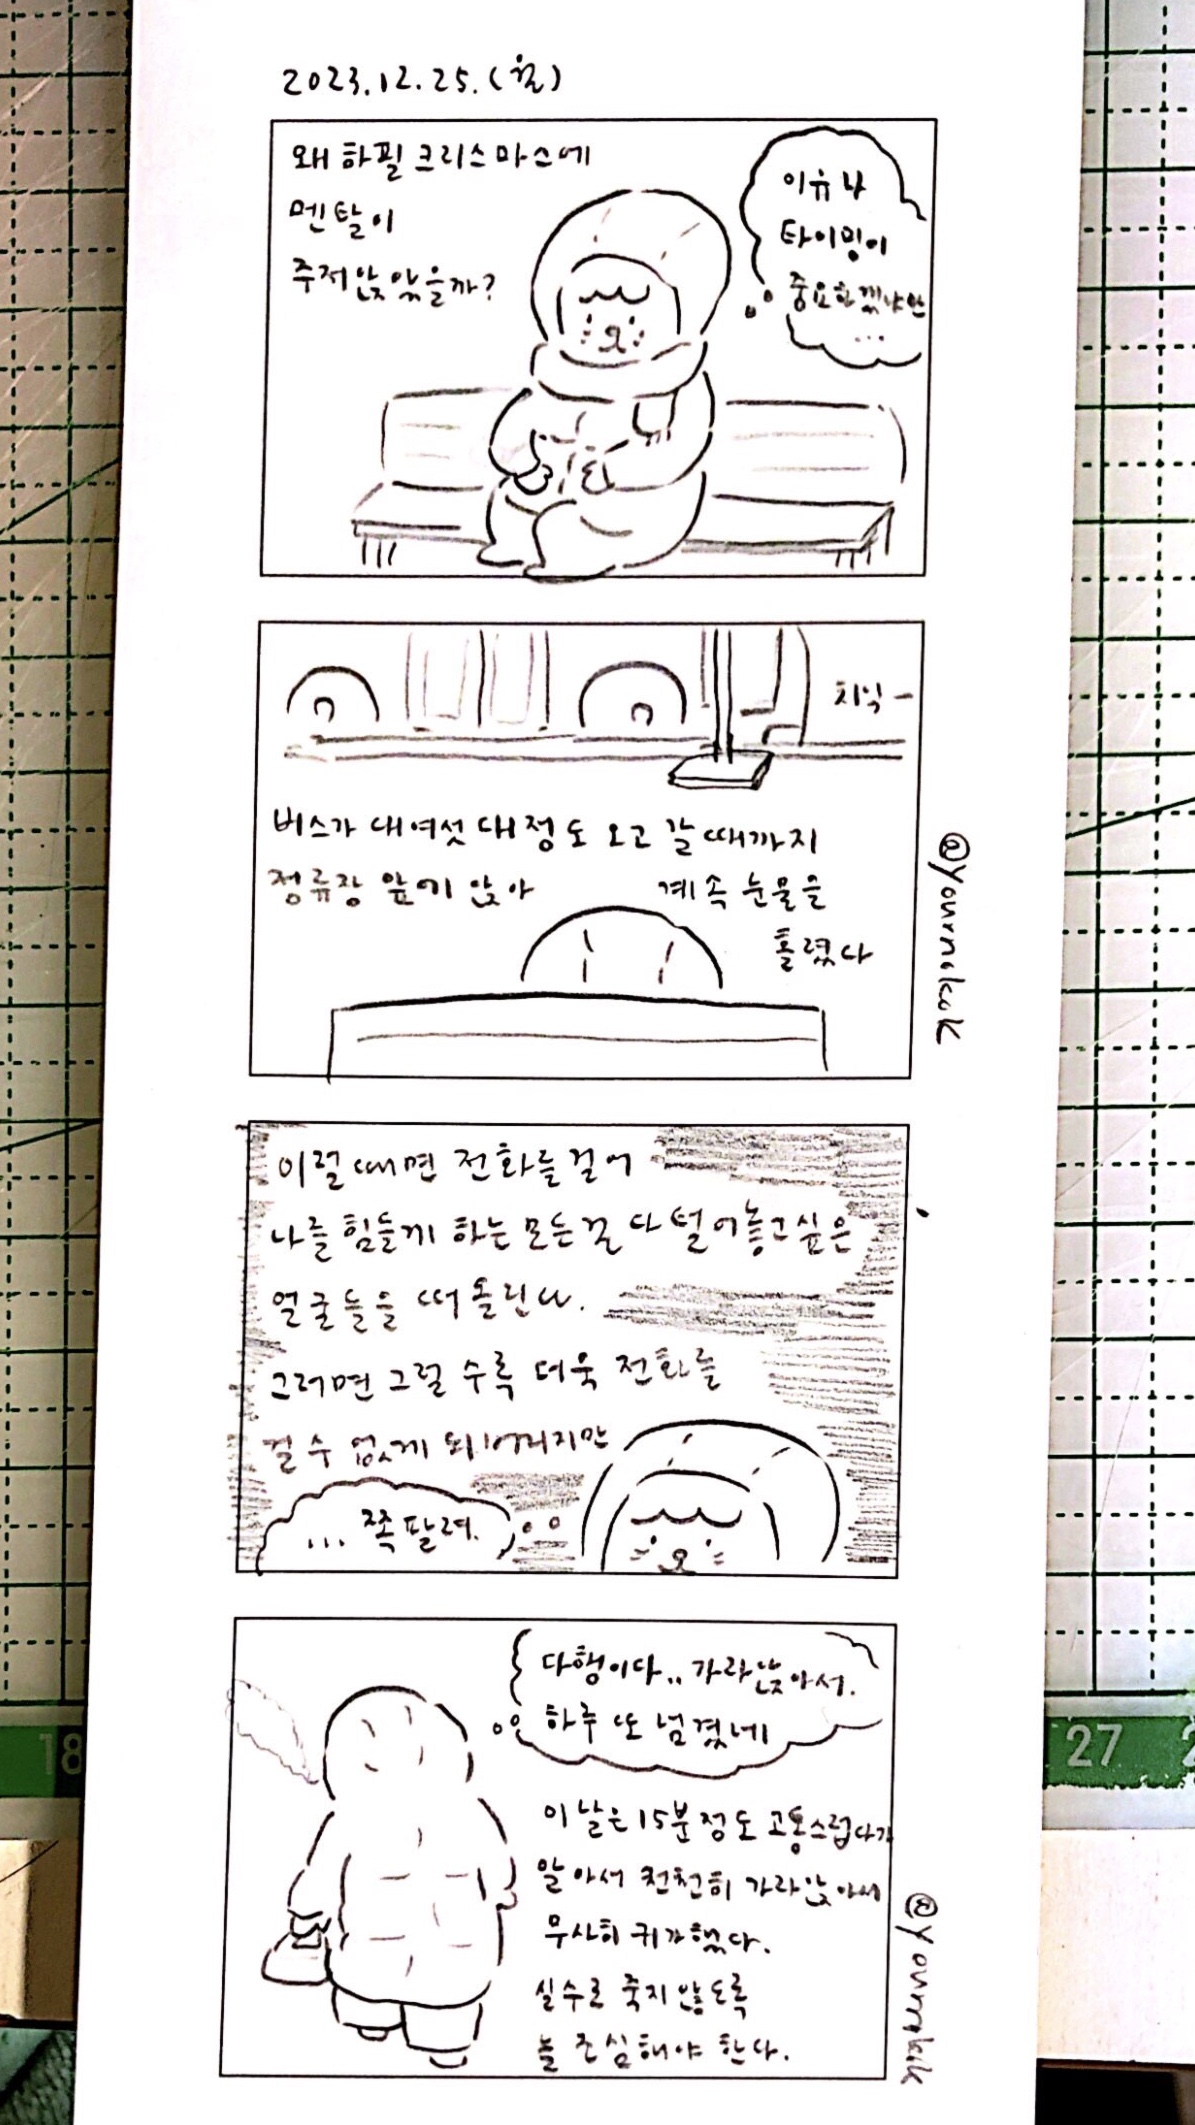 2023.12.25.(월)
왜 하필 크리스마스에
멘탈이
주저앉았을까?
이유나
타이밍이
중요하겠냐만
...
치익-
버스가 대여섯 대 정도 오고 갈 때까지
정류장 앞에 앉아 계속 눈물을
흘렸다
@yournokok
이럴 때면 전화를 걸어
나를 힘들게 하는 모든 걸 다 털어놓고 싶은
얼굴들을 떠올린다.
그러면 그럴 수록 더욱 전화를
걸 수 없게 되어버리지만
... 쪽팔려.
다행이다.. 가라앉아서.
하루 또 넘겼네
이 날은 15분 정도 고통스럽다가
알아서 천천히 가라앉아서
무사히 귀가했다.
실수로 죽지 않도록
늘 조심해야 한다.